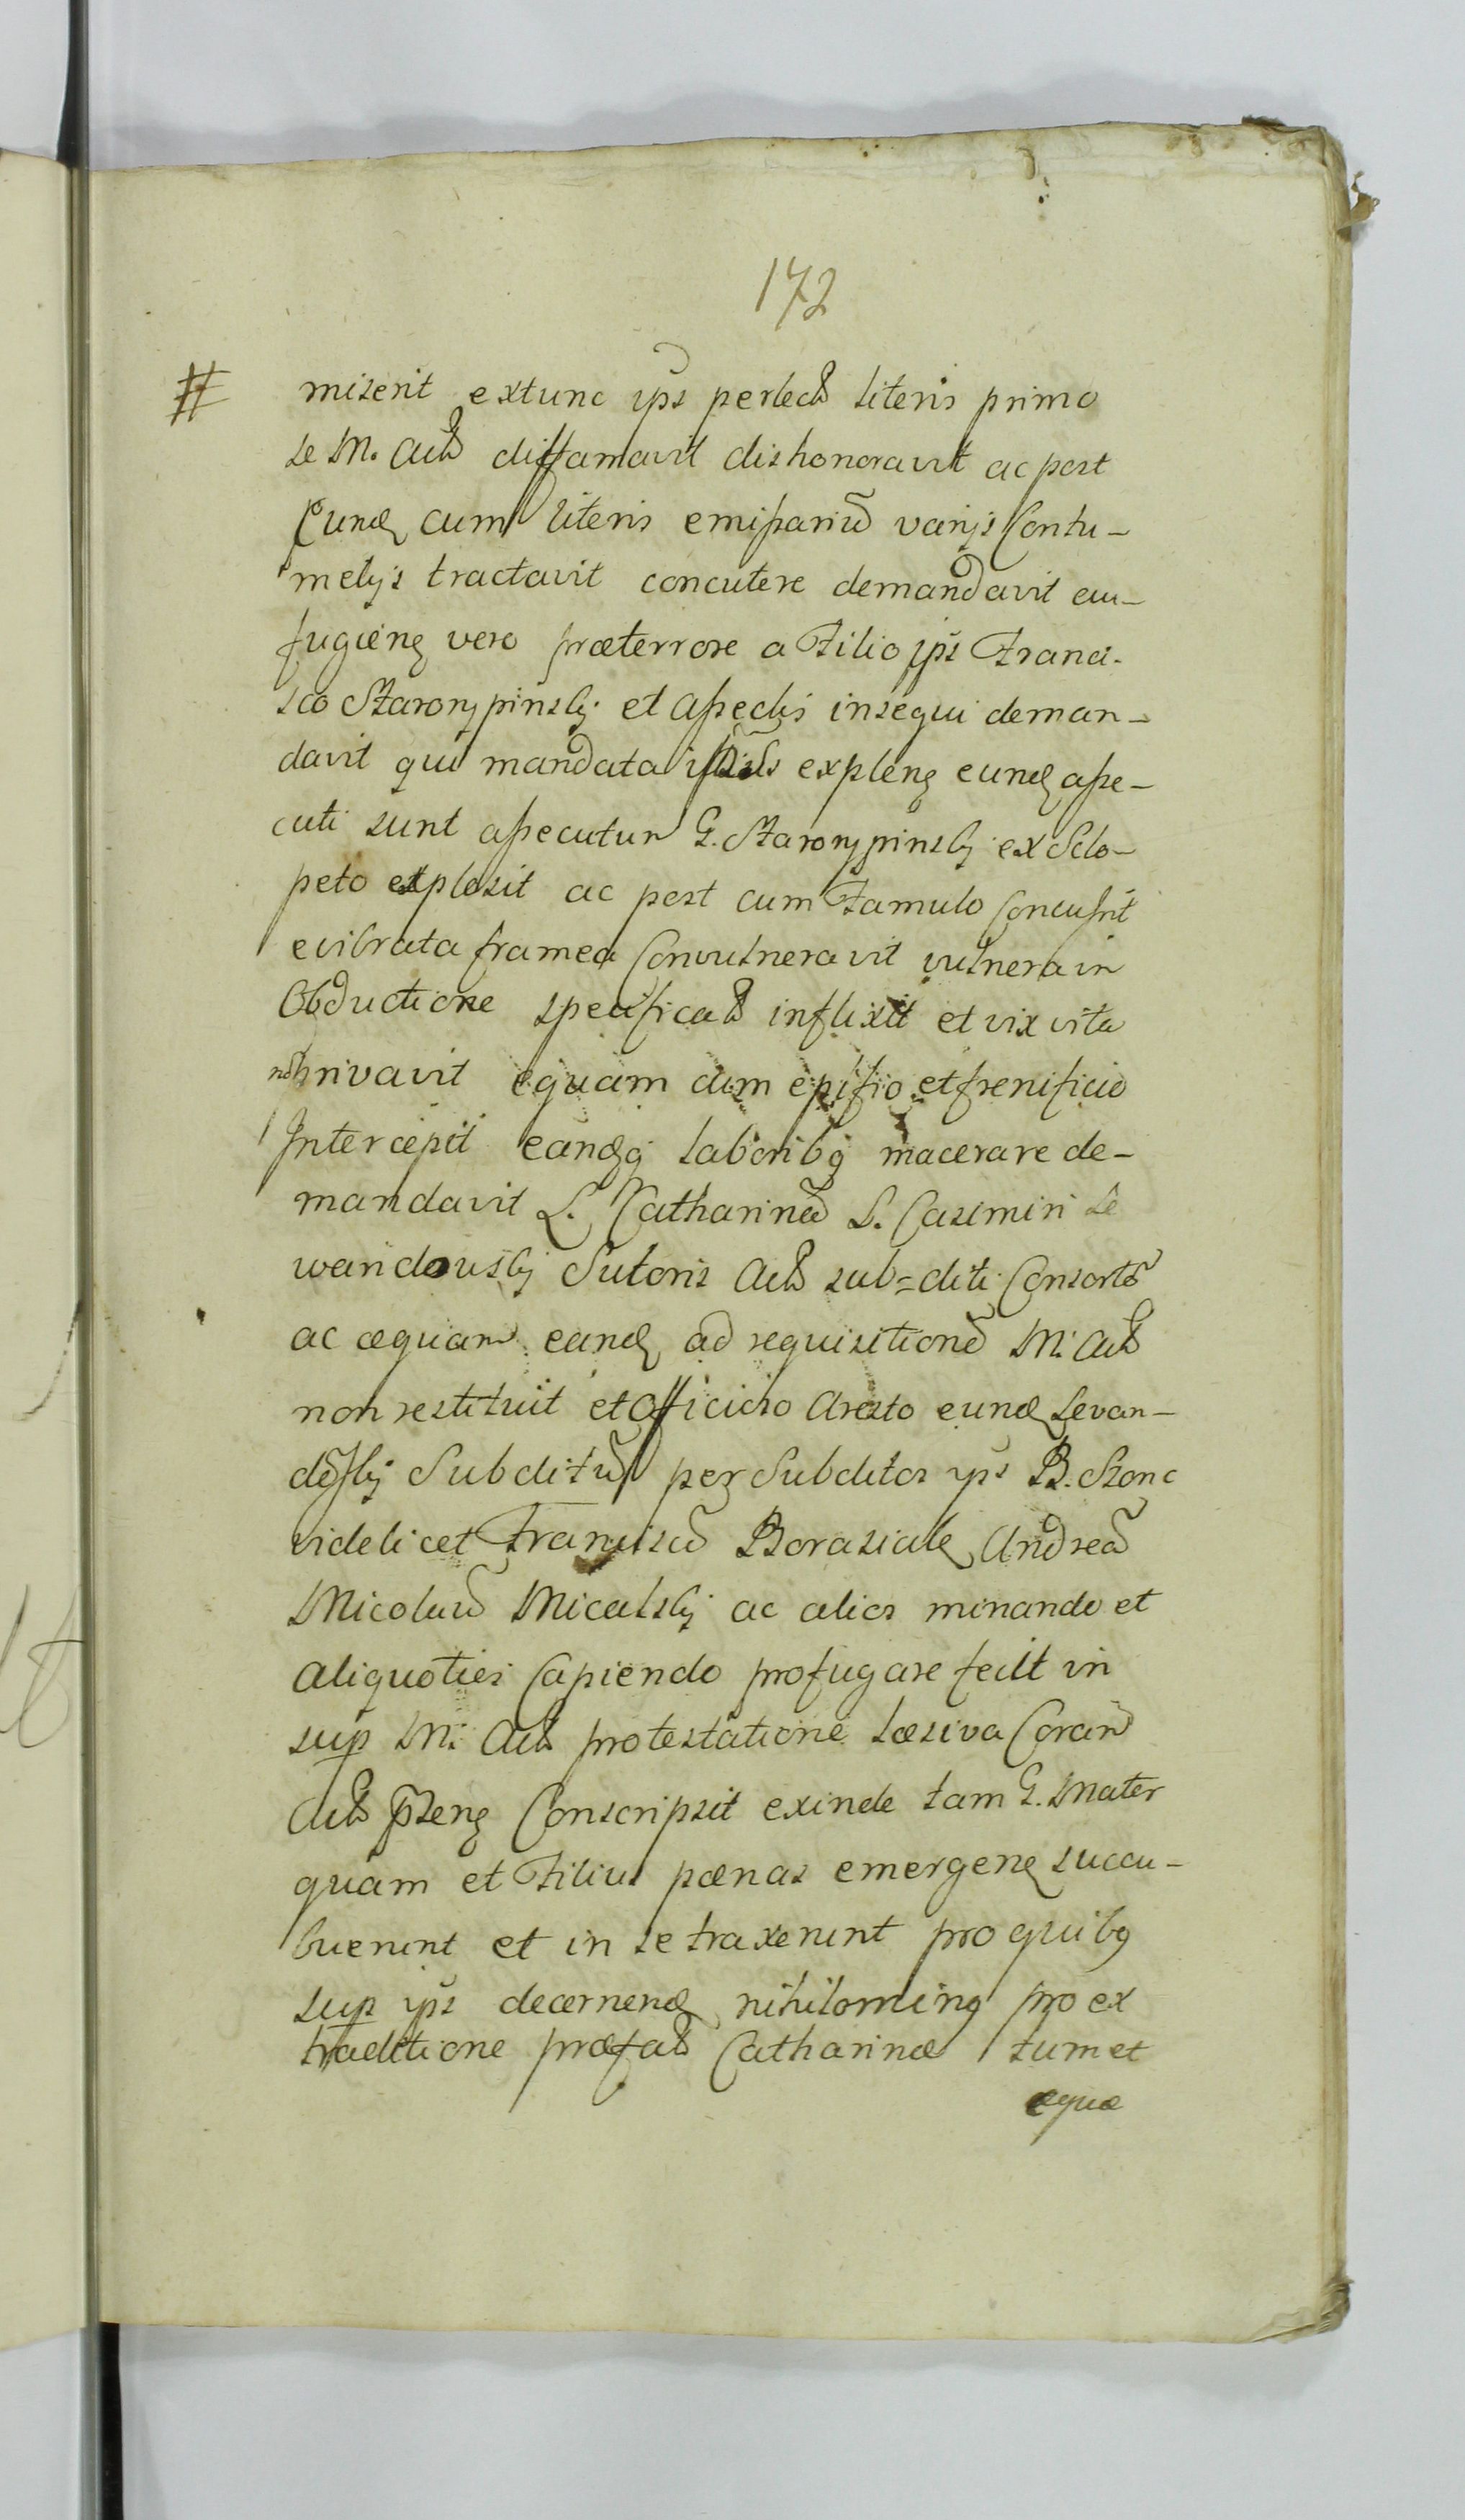 172
# miserit extunc ips perlectis literis primo
se M. Acts diffamavit dishonoravit ac post
Eund cum literis emissariū varijs Contu-
melijs tractavit concutere demandavit eu-
fugieng vero præterrore a Filio ips Franci-
sco Starorypinskj et assectis insequi deman-
davit qui mandata expleng eund asse-
cuti sunt assecutum G. Starorypinskj ex Sclo-
peto explosit ac post cum Famulo Concussit
evibrata framea Convulneravit vulnera in
Obductione specificats inflixit et vix vita
nō privavit equam cum epifio et frenificio
Intercepit eandq laboribq macerare de-
mandavit L. Catharinā L. Casimiri Le
wandouskj Sutoris Acts sub=diti Consortē
ac æquam eand ad requisitionē M. Acts
non restituit et Officioso Aresto eund Levan-
dōskj Subditū per Subditos ips B. Stonc
videlicet Franciscū Boraziak Andreā
Micolaū Micalskj ac alios minando et
aliquoties Capiendo profugare fecit in
sup M. Acts protestatione læsiva Coram
Acts pseng Conscripsit exinde tam G. Mater
quam et Filius pænas emergeng succu-
buerunt et in se traxerunt pro quibq
sup ips decernend nihilominq pro ex
traditione præfats Catharinæ tum et
equæ